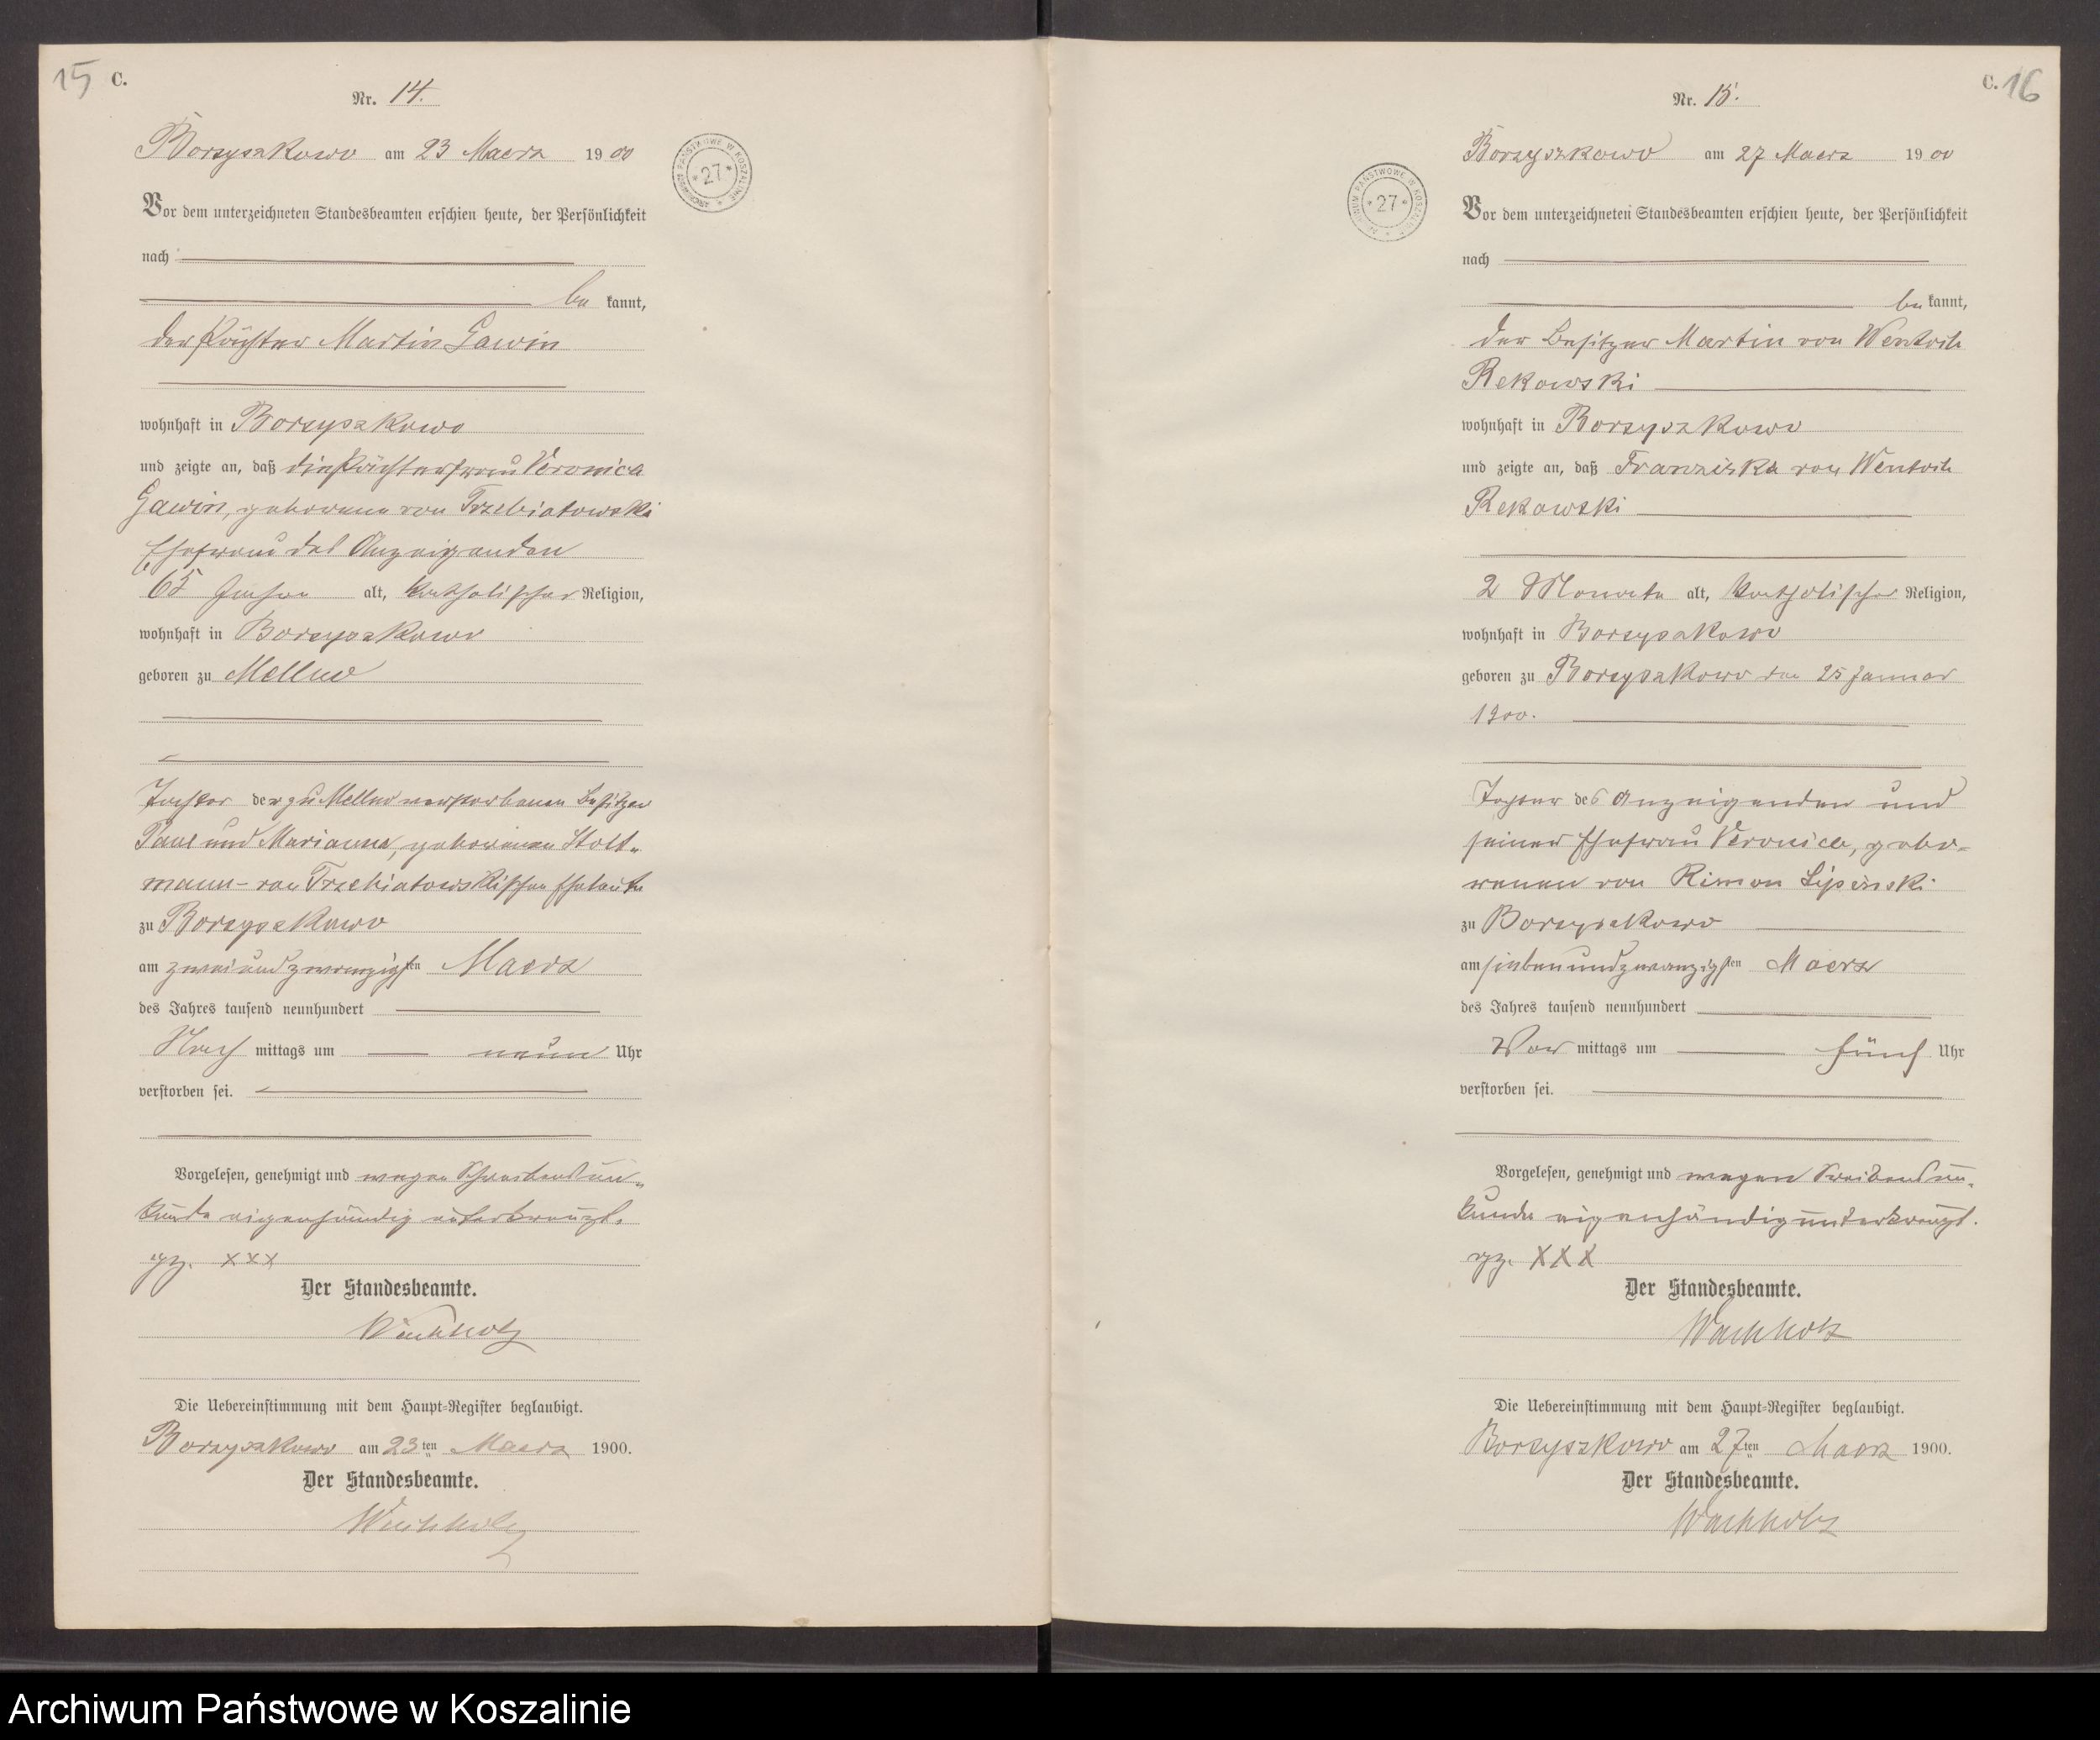 15 C.
Nr. 14.
Borzyszkowo am 23 Maerz 1900
Vor dem unterzeichneten Standesbeamten erschien heute, der Persönlichkeit
nach
be kannt,
der Pächter Martin Gawin
wohnhaft in Borzyszkowo
und zeigte an, daß die Pächterfrau Veronica
Gawin, geborene von Trzebiatowski
Ehefrau des Anzeigenden
65 Jahre alt, katholischer Religion,
wohnhaft in Borzyszkowo
geboren zu Mellno
Tochter der zu Mellno verstorbenen Besitzer
Paul und Marianna, geborenen Stolt-
mann- von Trzebiatowskischen Eheleute
zu Borzyszkowo
am zweiundzwanzigsten Maerz
des Jahres tausend neunhundert
Nach mittags um neun Uhr
verstorben sei.
Vorgelesen, genehmigt und wegen Schreibensun-
kunde eigenhändig unterkreuzt.
gz. XXX
Der Standesbeamte.
Wachholz
Die Uebereinstimmung mit dem Haupt=Register beglaubigt.
Borzyszkowo am 23ten Maerz 1900.
Der Standesbeamte.
Wachholz
ARCHIWUM PAŃSTWOWE W KOSZALINIE
* 27 *
C. 16
Nr. 15.
Borzyszkowo am 27 Maerz 1900
Vor dem unterzeichneten Standesbeamten erschien heute, der Persönlichkeit
nach
be kannt,
der Besitzer Martin von Wentoch
Rekowski
wohnhaft in Borzyszkowo
und zeigte an, daß Franziska von Wentoch
Rekowski
2 Monate alt, katholischer Religion,
wohnhaft in Borzyszkowo
geboren zu Borzyszkowo den 25 Januar
1900.
Tochter des Anzeigenden und
seiner Ehefrau Veronica, gebo-
renen von Rimon Lipinski
zu Borzyszkowo
am siebenundzwanzigsten Maerz
des Jahres tausend neunhundert
Vor mittags um fünf Uhr
verstorben sei.
Vorgelesen, genehmigt und wegen Schreibensun-
kunde eigenhändig unterkreuzt.
gz. XXX
Der Standesbeamte.
Wachholz
Die Uebereinstimmung mit dem Haupt=Register beglaubigt.
Borzyszkowo am 27ten Maerz 1900.
Der Standesbeamte.
Wachholz
ARCHIWUM PAŃSTWOWE W KOSZALINIE
* 27 *
Archiwum Państwowe w Koszalinie